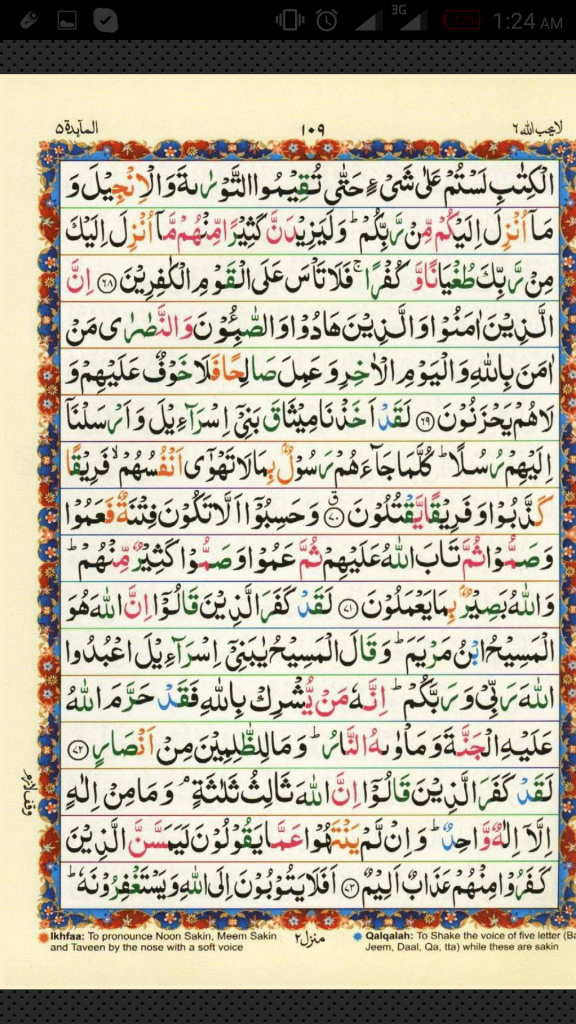 3G 12% 1:24 AM
المآىِٕدة ٥ ١٠٩ لا يحب الله ٦
الْكِتٰبِ لَسْتُمْ عَلٰى شَىْءٍ حَتّٰى تُقِيْمُوا التَّوْرٰىةَ وَالْاِنْجِيْلَ وَ
مَاۤ اُنْزِلَ اِلَيْكُمْ مِّنْ رَّبِّكُمْ ؕ وَلَيَزِيْدَنَّ كَثِيْرًا مِّنْهُمْ مَّاۤ اُنْزِلَ اِلَيْكَ
مِنْ رَّبِّكَ طُغْيَانًا وَّ كُفْرًا ۚ فَلَا تَاْسَ عَلَى الْقَوْمِ الْكٰفِرِيْنَ ﴿٦٨﴾ اِنَّ
الَّذِيْنَ اٰمَنُوْا وَالَّذِيْنَ هَادُوْا وَالصّٰبِـُٔوْنَ وَالنَّصٰرٰى مَنْ
اٰمَنَ بِاللّٰهِ وَالْيَوْمِ الْاٰخِرِ وَعَمِلَ صَالِحًا فَلَا خَوْفٌ عَلَيْهِمْ وَ
لَا هُمْ يَحْزَنُوْنَ ﴿٦٩﴾ لَقَدْ اَخَذْنَا مِيْثَاقَ بَنِىْۤ اِسْرَآءِيْلَ وَ اَرْسَلْنَاۤ
اِلَيْهِمْ رُسُلًا ؕ كُلَّمَا جَآءَهُمْ رَسُوْلٌۢ بِمَا لَا تَهْوٰٓى اَنْفُسُهُمْ ۙ فَرِيْقًا
كَذَّبُوْا وَ فَرِيْقًا يَّقْتُلُوْنَ ﴿٧٠﴾ وَحَسِبُوْۤا اَلَّا تَكُوْنَ فِتْنَةٌ فَعَمُوْا
وَصَمُّوْا ثُمَّ تَابَ اللّٰهُ عَلَيْهِمْ ثُمَّ عَمُوْا وَصَمُّوْا كَثِيْرٌ مِّنْهُمْ ؕ
وَاللّٰهُ بَصِيْرٌۢ بِمَا يَعْمَلُوْنَ ﴿٧١﴾ لَقَدْ كَفَرَ الَّذِيْنَ قَالُوْۤا اِنَّ اللّٰهَ هُوَ
الْمَسِيْحُ ابْنُ مَرْيَمَ ؕ وَقَالَ الْمَسِيْحُ يٰبَنِىْۤ اِسْرَآءِيْلَ اعْبُدُوا
اللّٰهَ رَبِّىْ وَ رَبَّكُمْ ؕ اِنَّهٗ مَنْ يُّشْرِكْ بِاللّٰهِ فَقَدْ حَرَّمَ اللّٰهُ
عَلَيْهِ الْجَنَّةَ وَمَاْوٰىهُ النَّارُ ؕ وَمَا لِلظّٰلِمِيْنَ مِنْ اَنْصَارٍ ﴿٧٢﴾
لَقَدْ كَفَرَ الَّذِيْنَ قَالُوْۤا اِنَّ اللّٰهَ ثَالِثُ ثَلٰثَةٍ ۘ وَمَا مِنْ اِلٰهٍ
اِلَّاۤ اِلٰهٌ وَّاحِدٌ ؕ وَاِنْ لَّمْ يَنْتَهُوْا عَمَّا يَقُوْلُوْنَ لَيَمَسَّنَّ الَّذِيْنَ
كَفَرُوْا مِنْهُمْ عَذَابٌ اَلِيْمٌ ﴿٧٣﴾ اَفَلَا يَتُوْبُوْنَ اِلَى اللّٰهِ وَيَسْتَغْفِرُوْنَهٗ ؕ
وقف لازم
منزل ٢
Ikhfaa: To pronounce Noon Sakin, Meem Sakin
and Taveen by the nose with a soft voice
Qalqalah: To Shake the voice of five letter (Ba
Jeem, Daal, Qa, tta) while these are sakin